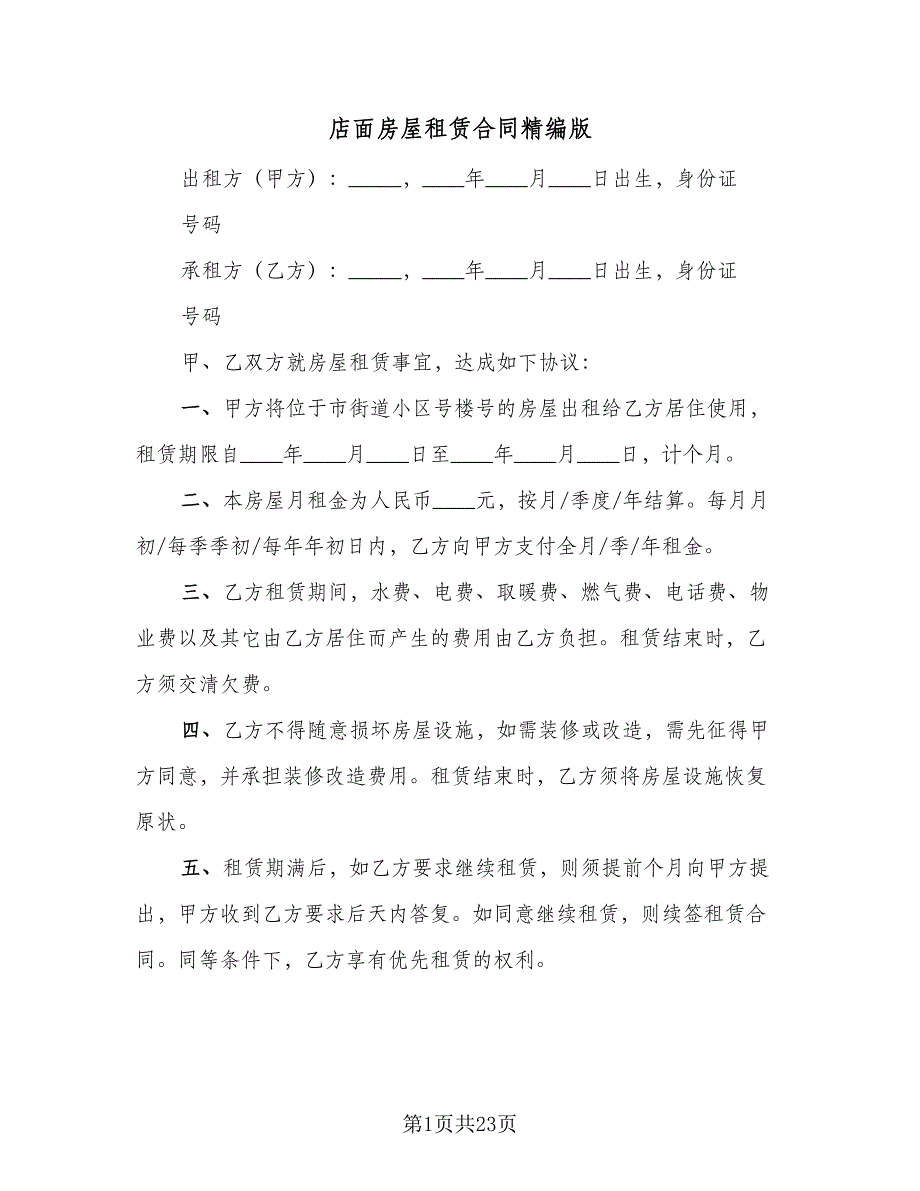 店面房屋租赁合同精编版
出租方（甲方）：_____，____年____月____日出生，身份证
号码
承租方（乙方）：_____，____年____月____日出生，身份证
号码
甲、乙双方就房屋租赁事宜，达成如下协议：
一、甲方将位于市街道小区号楼号的房屋出租给乙方居住使用，
租赁期限自____年____月____日至____年____月____日，计个月。
二、本房屋月租金为人民币____元，按月/季度/年结算。每月月
初/每季季初/每年年初日内，乙方向甲方支付全月/季/年租金。
三、乙方租赁期间，水费、电费、取暖费、燃气费、电话费、物
业费以及其它由乙方居住而产生的费用由乙方负担。租赁结束时，乙
方须交清欠费。
四、乙方不得随意损坏房屋设施，如需装修或改造，需先征得甲
方同意，并承担装修改造费用。租赁结束时，乙方须将房屋设施恢复
原状。
五、租赁期满后，如乙方要求继续租赁，则须提前个月向甲方提
出，甲方收到乙方要求后天内答复。如同意继续租赁，则续签租赁合
同。同等条件下，乙方享有优先租赁的权利。
第1页共23页